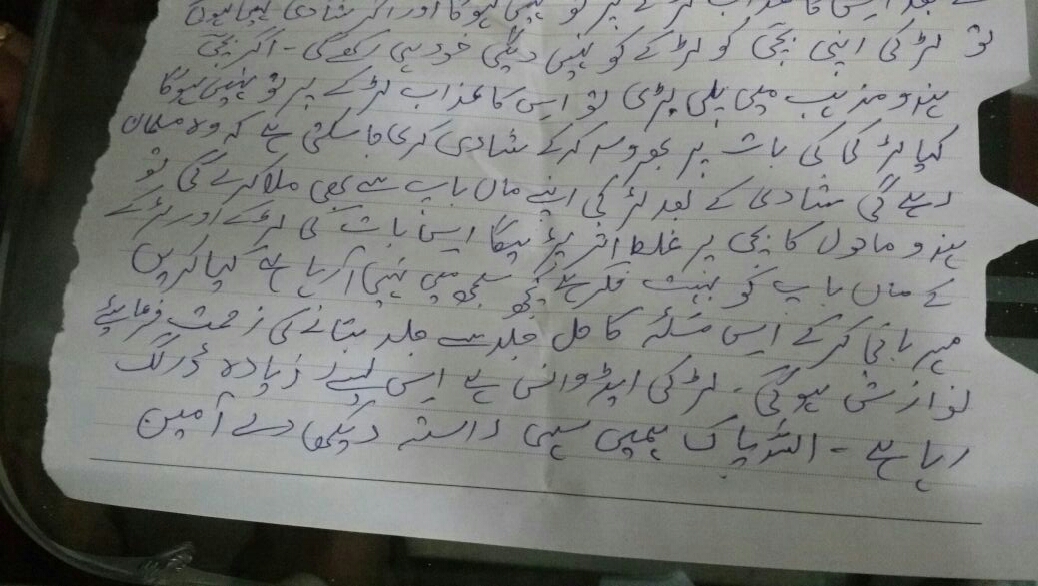 کے بعد اس کا عذاب لڑکے پر تو نہیں ہوگا اور اگر شادی نہیں ہوئی
تو لڑکی اپنی بچی کو لڑکے کو نہیں دیگی خود ہی رکھے گی - اگر بچی
ہندو مذہب میں پلی بڑی تو اس کا عذاب لڑکے پر تو نہیں ہوگا
کیا لڑکی کی بات پر بھروسہ کرکے شادی کری جا سکتی ہے کہ وہ مسلمان
رہے گی شادی کے بعد لڑکی اپنے ماں باپ سے بھی ملا کرے گی تو
ہندو ماحول کا بچی پر غلط اثر پڑیگا اسی بات کی لڑکے اور لڑکے
کے ماں باپ کو بہت فکر ہے کچھ سمجھ میں نہیں آرہا ہے کیا کریں
مہربانی کرکے اس مسئلہ کا حل جلد سے جلد بتانے کی زحمت فرمایئے
نوازش ہوگی - لڑکی ایڈوانس ہے اس لیئے زیادہ ڈر لگ
رہا ہے - اللہ پاک ہمیں سہی راستہ دیکھا دے آمین